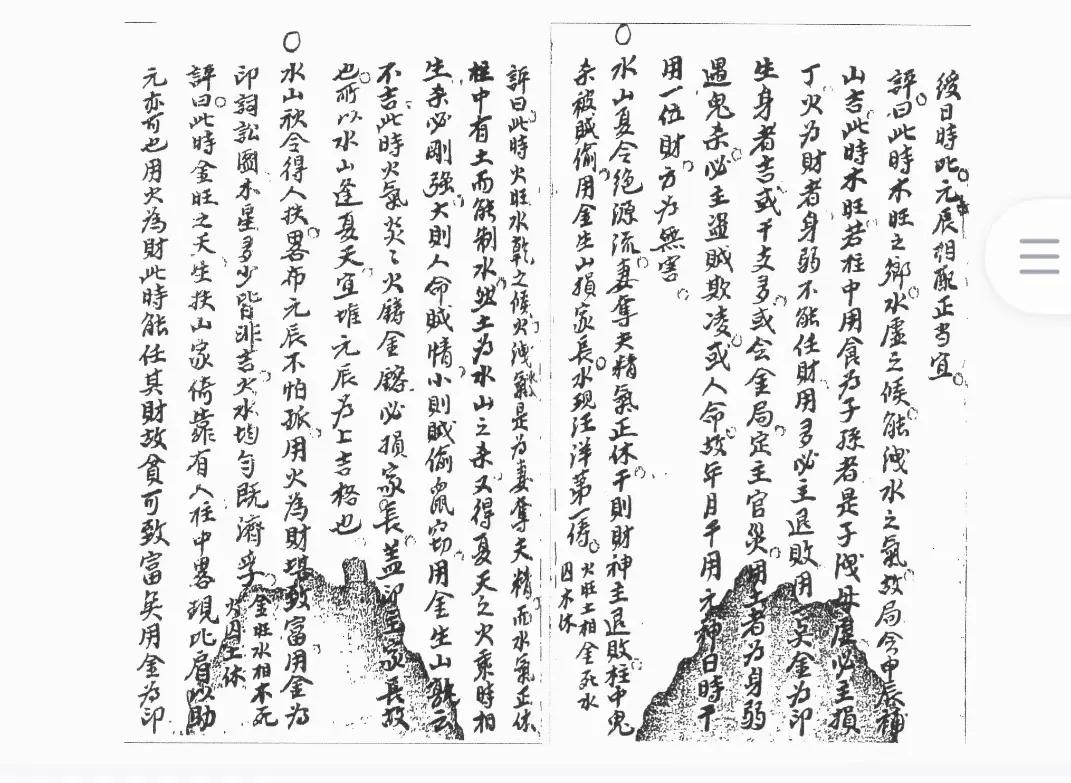 後日時比元辰相配正当宜
評曰此時木旺之鄉水虛之候能洩水之氣故局令申辰補
山吉此時木旺若柱中用食为子孫者是子洩母虛必主損
丁火为財者身弱不能任財用多必主退敗用一点金为印
生身者吉或干支多或会金局定主官災用土者为身弱
遇鬼杀必主盜賊欺凌或人命故年月干用元神日時干
用一位財方为無害
水山夏令绝源流妻奪夫精氣正休干則財神主退敗柱中鬼
杀被賊偷用金生山損家長水現汪洋第一儔 火旺土相金死水
囚木休
評曰此時火旺水乾之候火洩氣是为妻奪夫精而水氣正休
柱中有土而能制水兙土为水山之杀又得夏天之火乘時相
生杀必剛強大則人命賊情小則賊偷鼠窃用金生山
不吉此時火氣炎々火鎔金鎔必損家長盖印主家長故
也所以水山逢夏天宜堆元辰为上吉格也
水山秋令得人扶畧布元辰不怕孤用火為財堪致富用金为
印詞訟圖木星多少皆非吉火水均勻既濟乎 金旺水相木死
火囚土休
評曰此時金旺之天生扶山家倚靠有人柱中畧現比肩以助
元亦可也用火為財此時能任其財故貧可致富矣用金为印